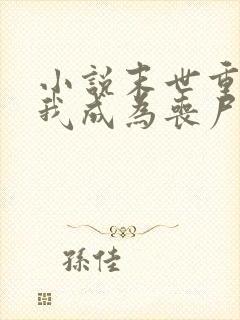 小說末世重
我成為喪尸
孫佳